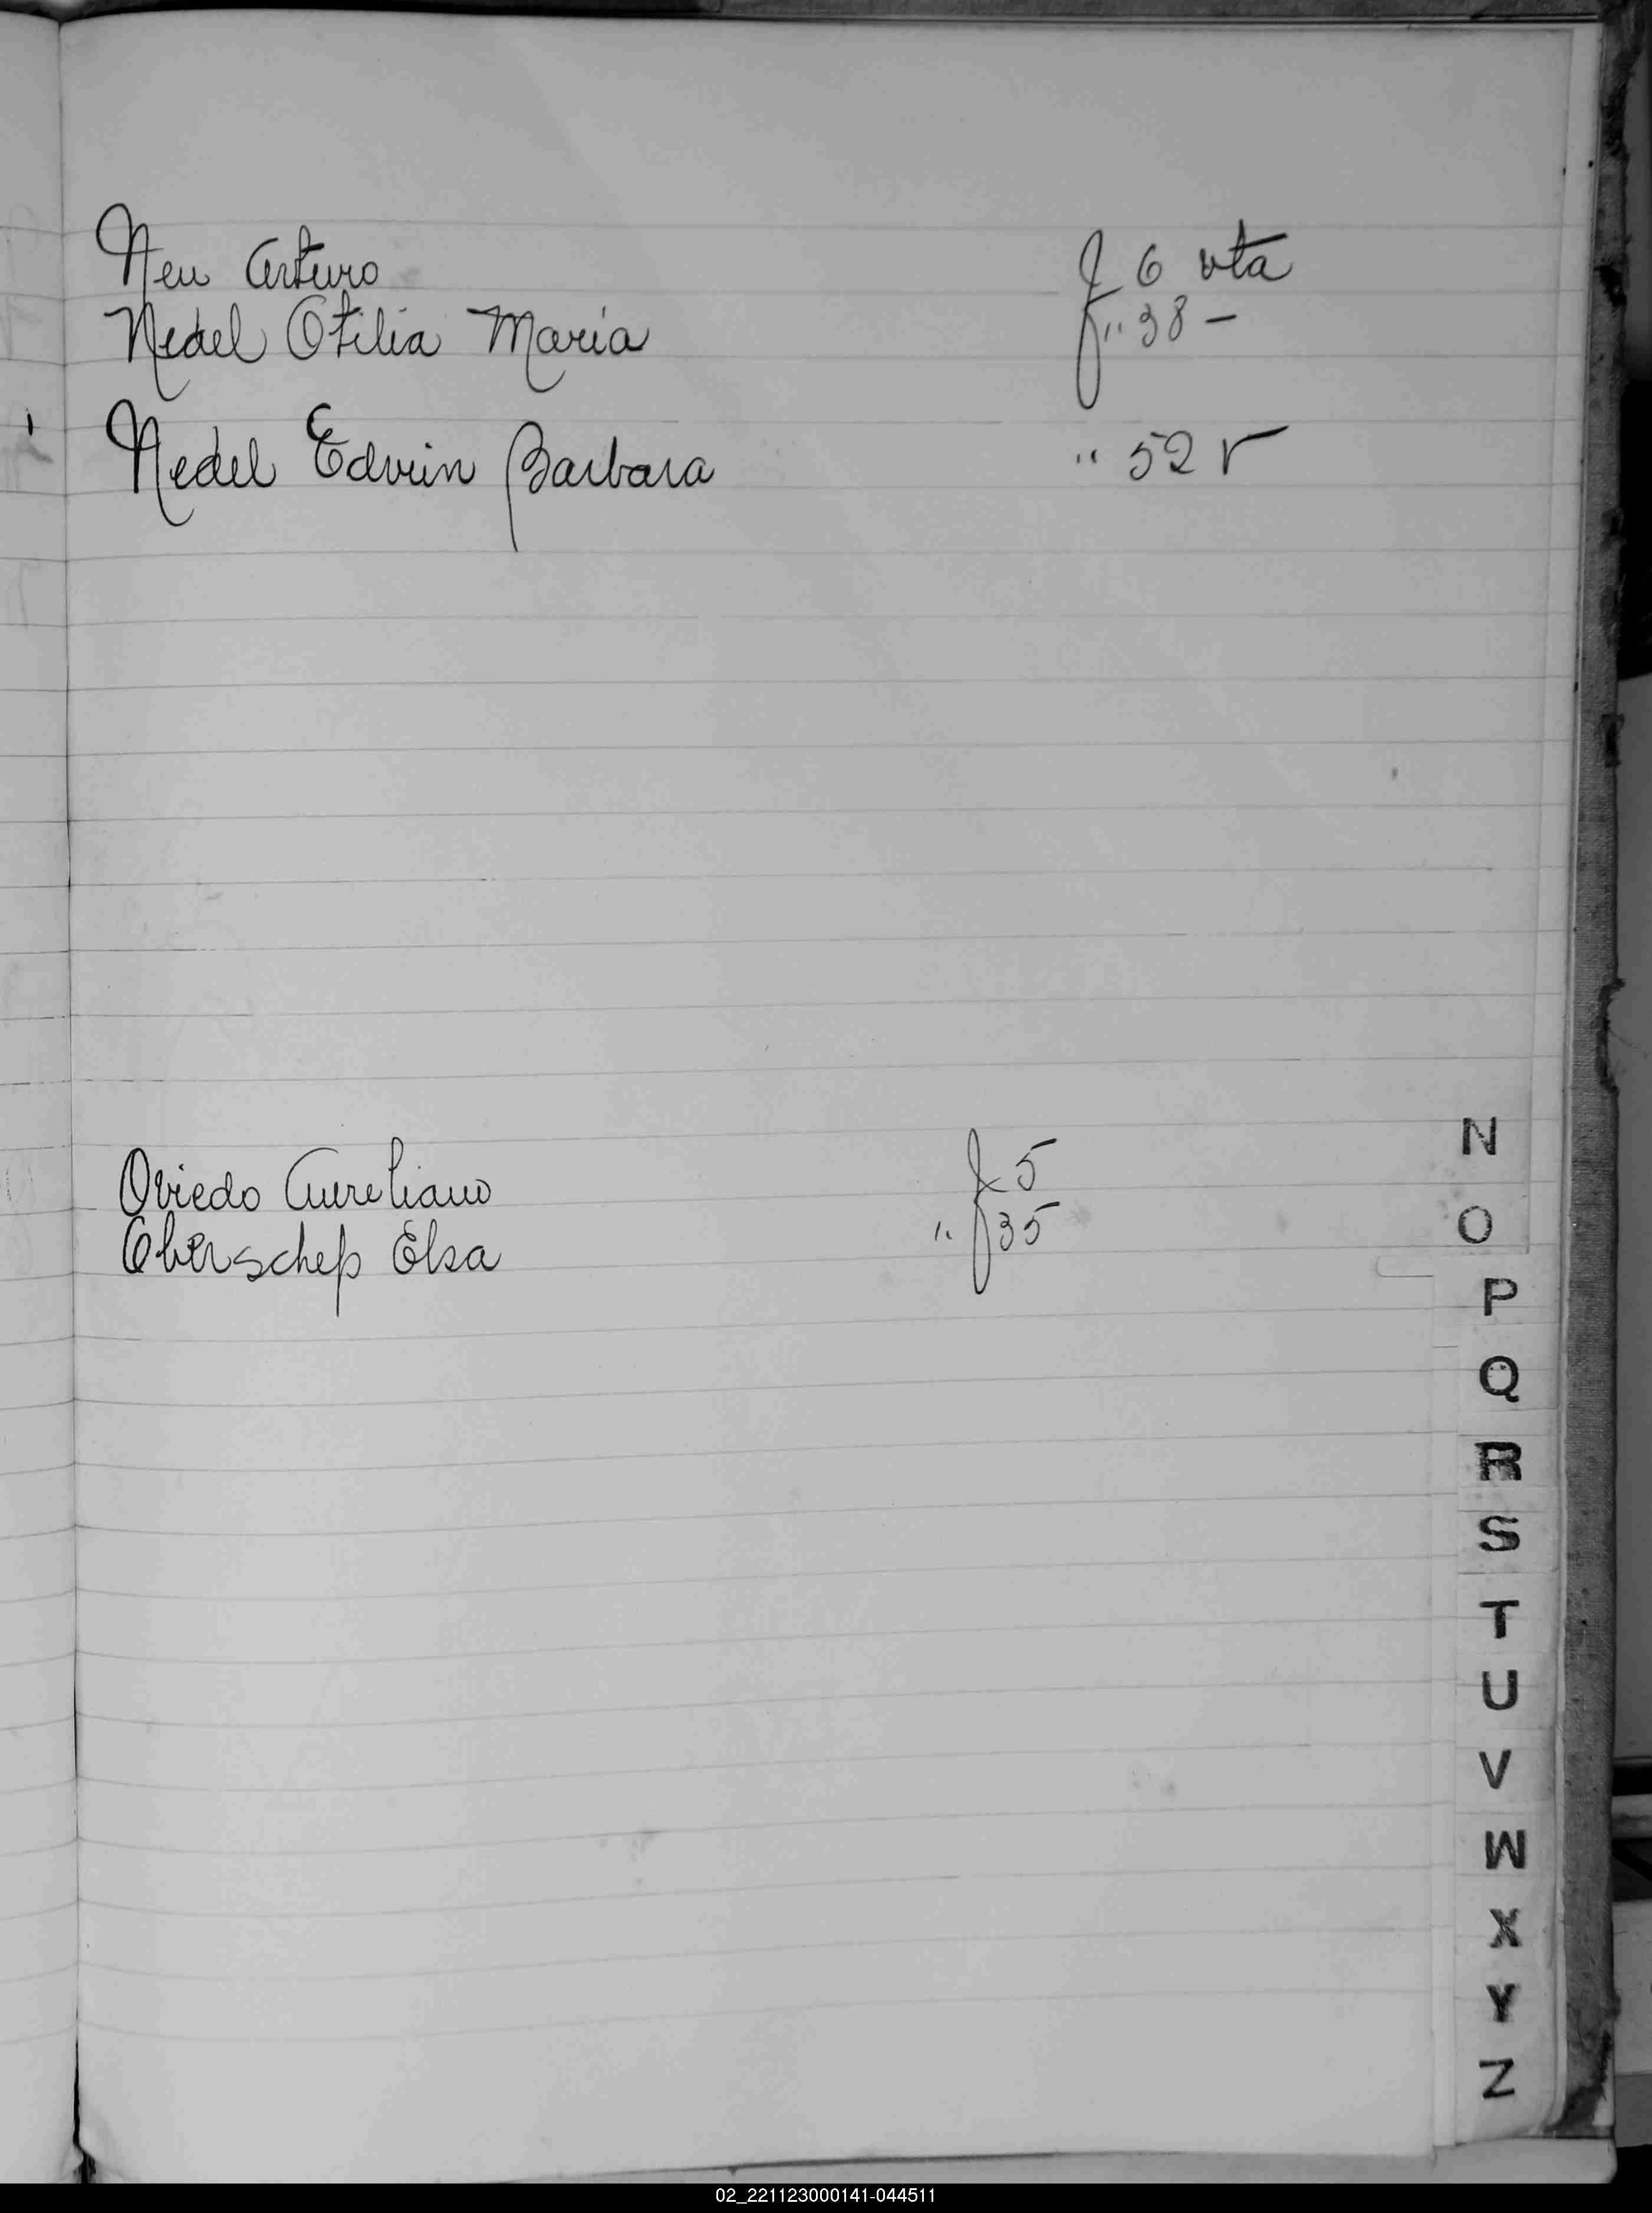 Neu Arturo f 6 vta
Nedel Otilia Maria f " 38 -
Nedel Edvin Barbara " 52 v
Oviedo Aureliano f 5
Oberschefs Elsa " f 35
N
O
P
Q
R
S
T
U
V
W
X
Y
Z
02_221123000141-044511